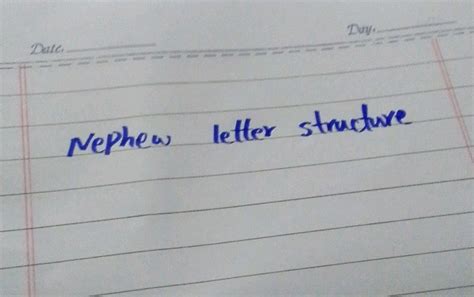 Date. Day.
Nephew letter structure